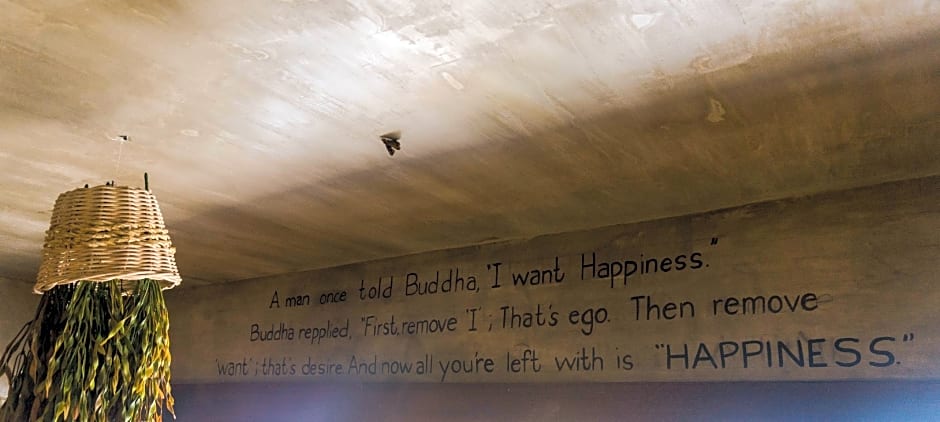 A man once told Buddha, 'I want Happiness."
Buddha repplied, "First, remove 'I' ; That's ego. Then remove
'want' ; that's desire. And now all you're left with is "HAPPINESS."